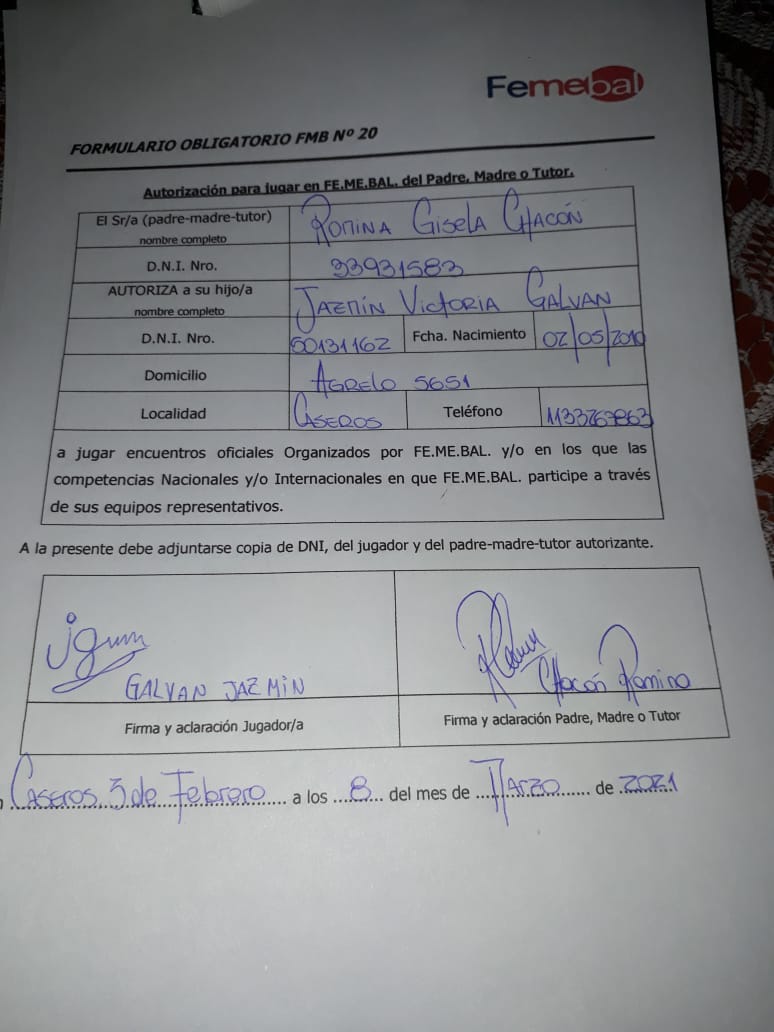 Femebal
FORMULARIO OBLIGATORIO FMB Nº 20
Autorización para jugar en FE.ME.BAL. del Padre, Madre o Tutor.
El Sr/a (padre-madre-tutor) nombre completo ROMINA GISELA CHACÓN
D.N.I. Nro. 33931583
AUTORIZA a su hijo/a nombre completo JAZMÍN VICTORIA GALVAN
D.N.I. Nro. 50131162 Fcha. Nacimiento 02/05/2010
Domicilio AGRELO 5651
Localidad CASEROS Teléfono 1133767863
a jugar encuentros oficiales Organizados por FE.ME.BAL. y/o en los que las
competencias Nacionales y/o Internacionales en que FE.ME.BAL. participe a través
de sus equipos representativos.
A la presente debe adjuntarse copia de DNI, del jugador y del padre-madre-tutor autorizante.
GALVAN JAZMIN
Chacón Romina
Firma y aclaración Jugador/a Firma y aclaración Padre, Madre o Tutor
CASEROS, 3 de Febrero a los 8 del mes de MARZO de 2021